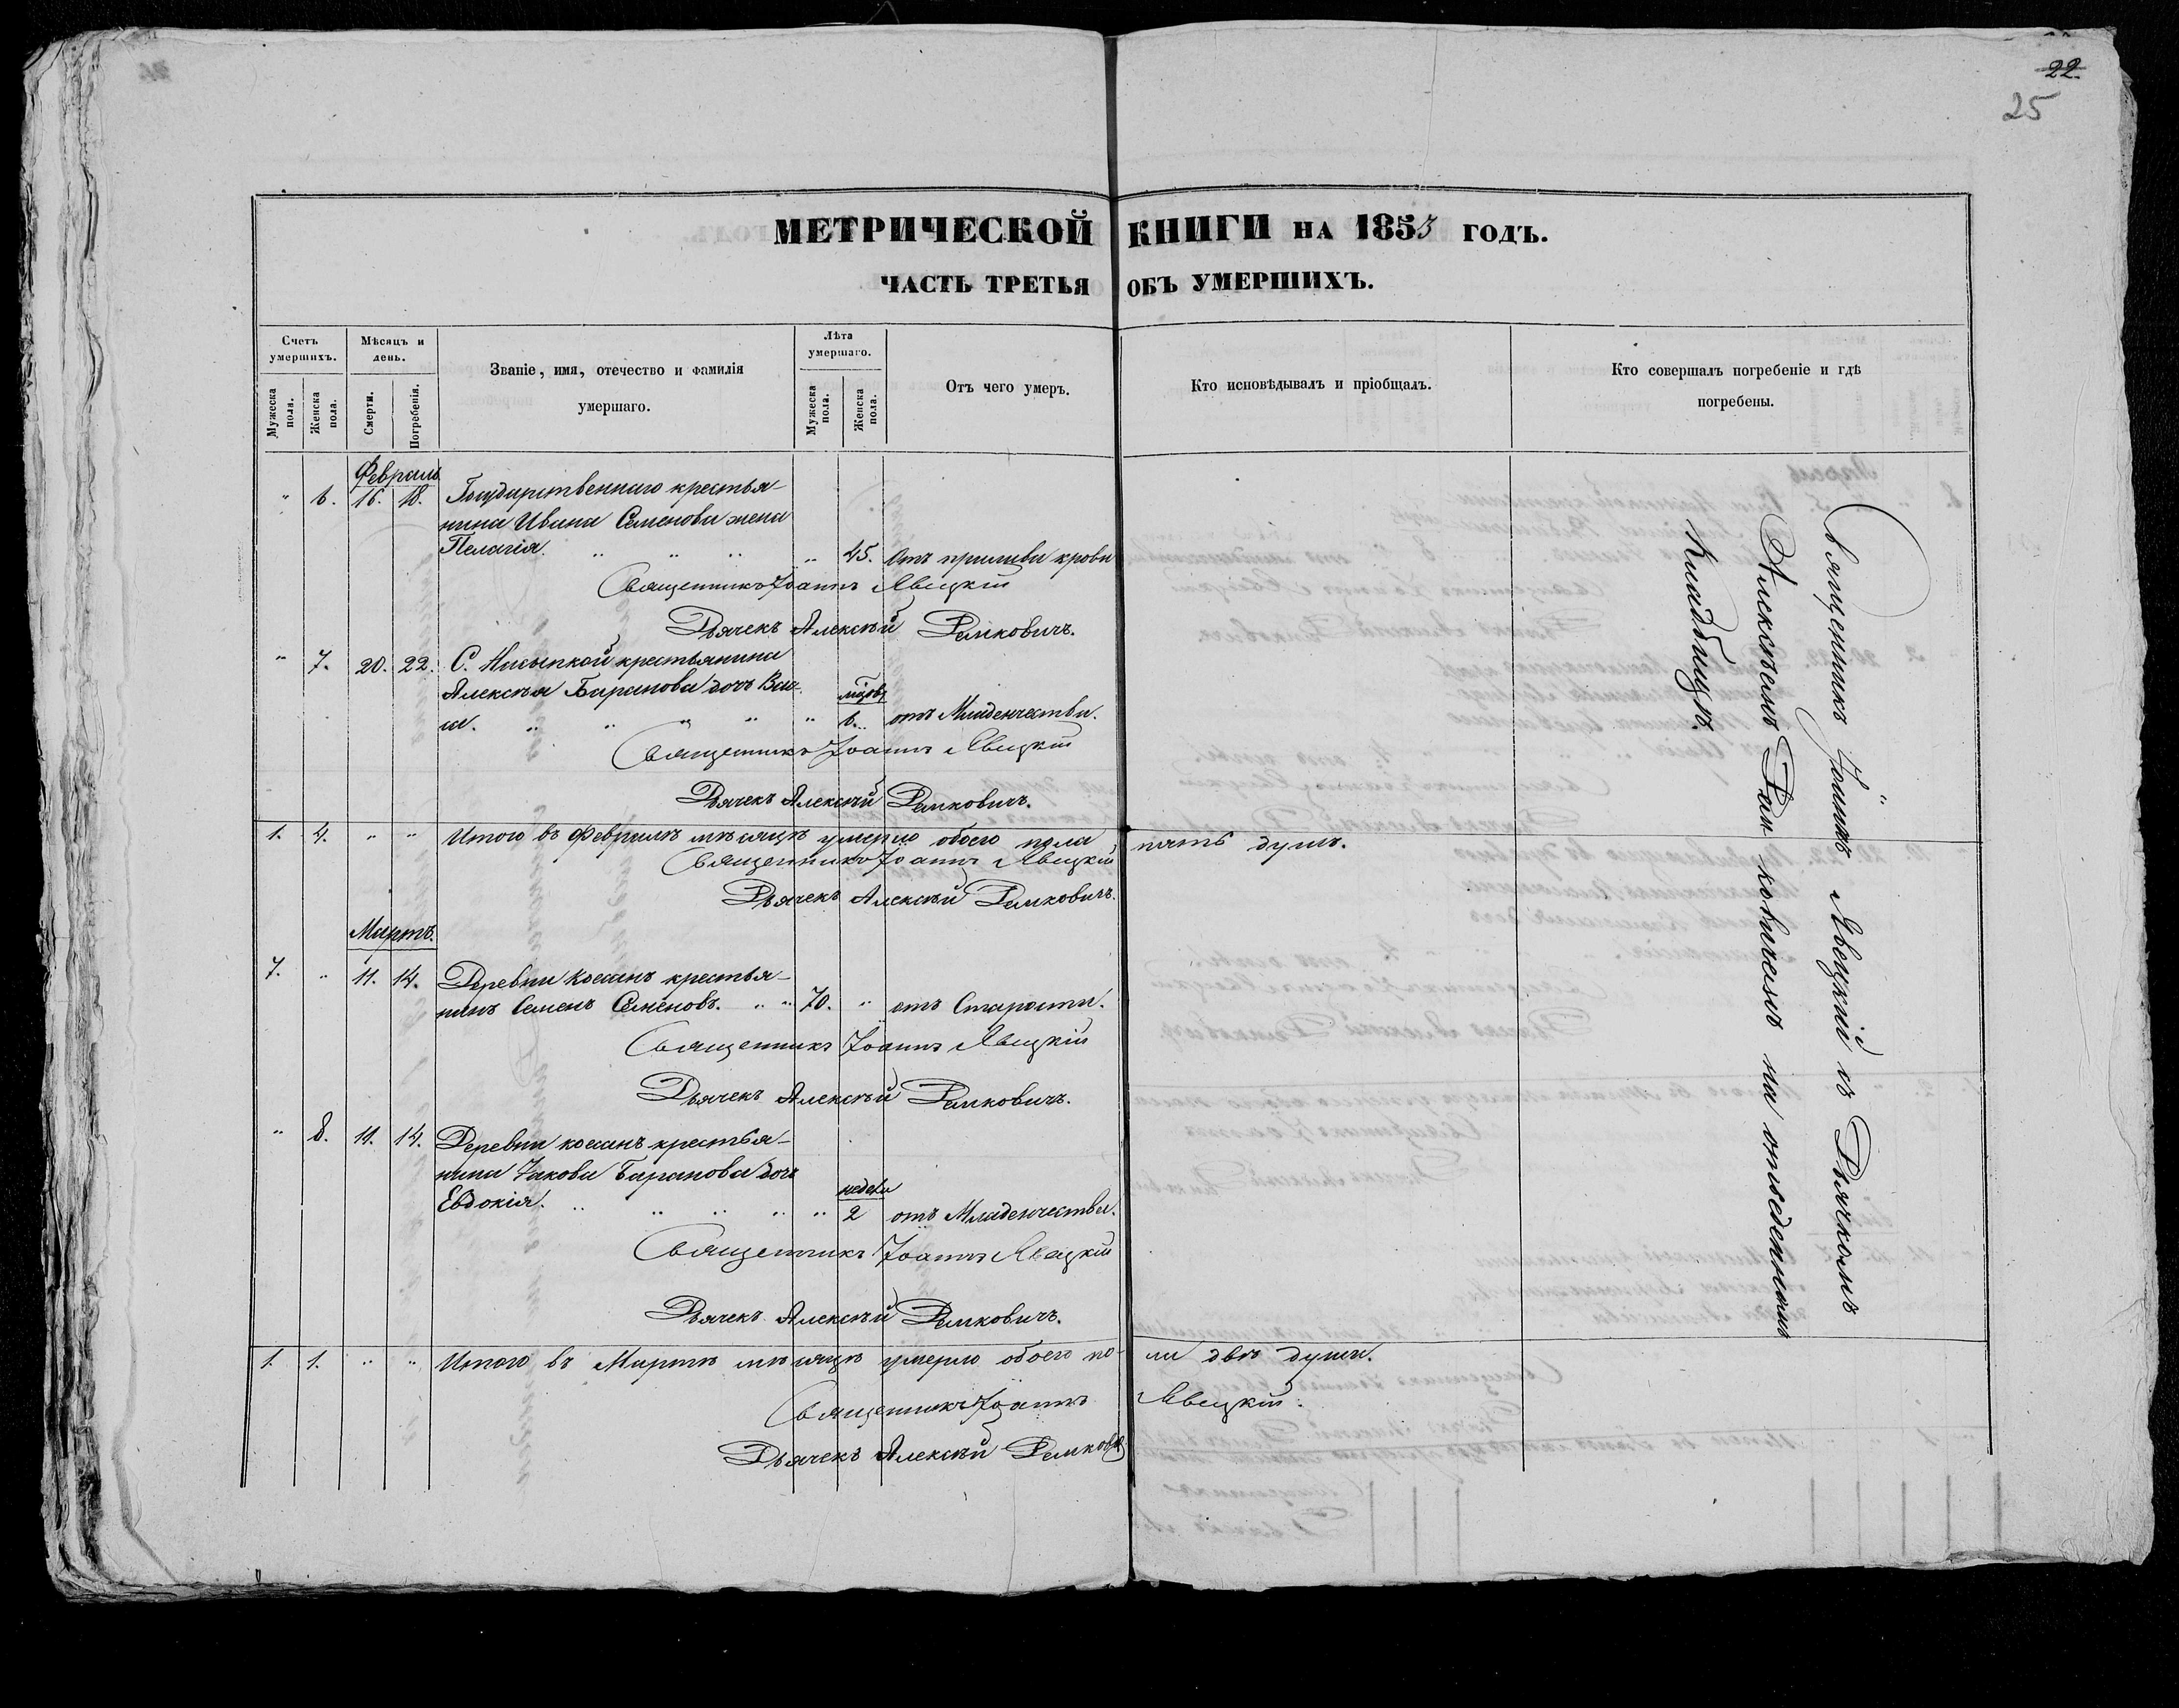 22.
25
МЕТРИЧЕСКОЙ КНИГИ НА 1853 ГОДЪ.
ЧАСТЬ ТРЕТЬЯ ОБЪ УМЕРШИХЪ.
Счетъ умершихъ.
Мужеска пола.
Женска пола.
Мѣсяцъ и день.
Смерти.
Погребенія.
Званіе, имя, отечество и фамилія
умершаго.
Лѣта умершаго.
Мужеска пола.
Женска пола.
Отъ чего умеръ.
Кто исповѣдывалъ и пріобщалъ.
Кто совершалъ погребеніе и гдѣ
погребены.
Февраль
" 6. 16. 18. Государственнаго крестья-
нина Ивана Семенова жена
Пелагія. " " " " 45. Отъ прилива крови
Священникъ Іоаннъ Явецкій
Дьячекъ Алексѣй Рамковичъ.
" 7. 20. 22. С. крестьянина
Алексѣя Баранова дочь
" " " " " 6. отъ Младенчества.
Священникъ Іоаннъ Явецкій
Дьячекъ Алексѣй Рамковичъ.
1. 4. " " Итого въ Февралѣ мѣсяцѣ умерло обоего пола пять душъ.
Священникъ Іоаннъ Явецкій
Дьячекъ Алексѣй Рамковичъ.
Мартъ.
7. " 11. 14. Деревни крестья-
нинъ Семенъ Семеновъ. " " 70. " отъ Старости.
Священникъ Іоаннъ Явецкій
Дьячекъ Алексѣй Рамковичъ.
" 8. 11. 14. Деревни крестья-
нина Іакова Баранова дочь
недели
Евдокія. " " " " " 2 отъ Младенчества.
Священникъ Іоаннъ Явецкій
Дьячекъ Алексѣй Рамковичъ.
1. 1. " " Итого въ Мартѣ мѣсяцѣ умерло обоего по-ла двѣ души.
Священникъ Іоаннъ Явецкій.
Дьячекъ Алексѣй Рамкович
Священникъ Іоаннъ Явецкій съ Дьячкомъ
Алексѣемъ Рамковичемъ на отведенномъ
Кладбищѣ.